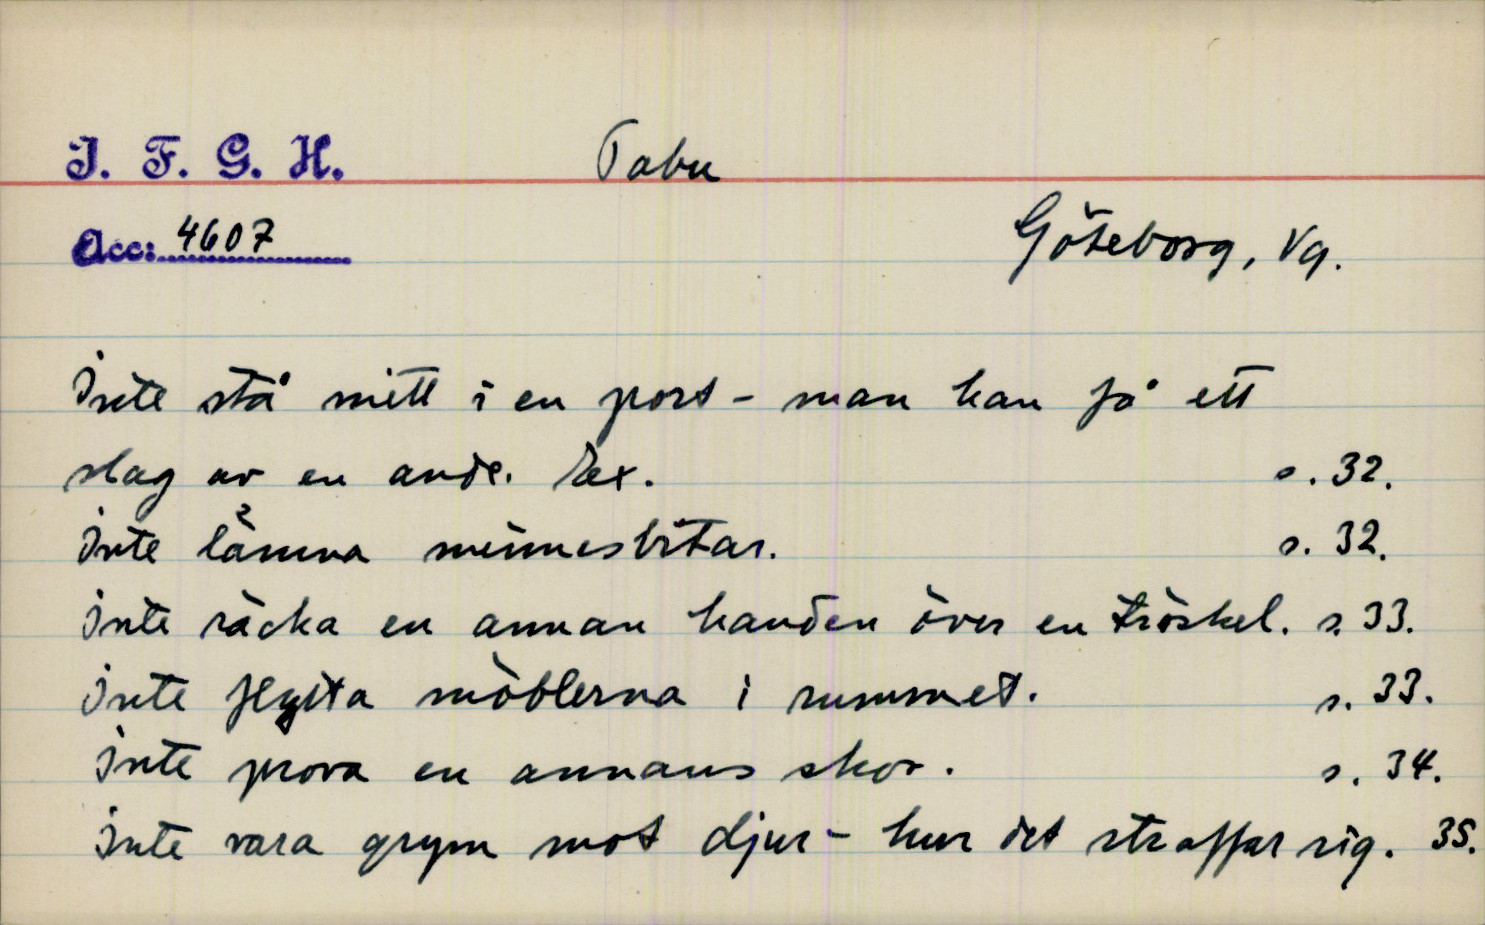 I. F. G. H.
Tabu
Acc: 4607
Göteborg, Vg.
Inte stå mitt i en port - man kan få ett
slag av en ande. Ex. s. 32.
Inte lämna minnesbitar. s. 32.
Inte räcka en annan handen över en tröskel. s. 33.
Inte flytta möblerna i rummet. s. 33.
Inte prova en annans skor. s. 34.
Inte vara grym mot djur - hur det straffar sig. 35.